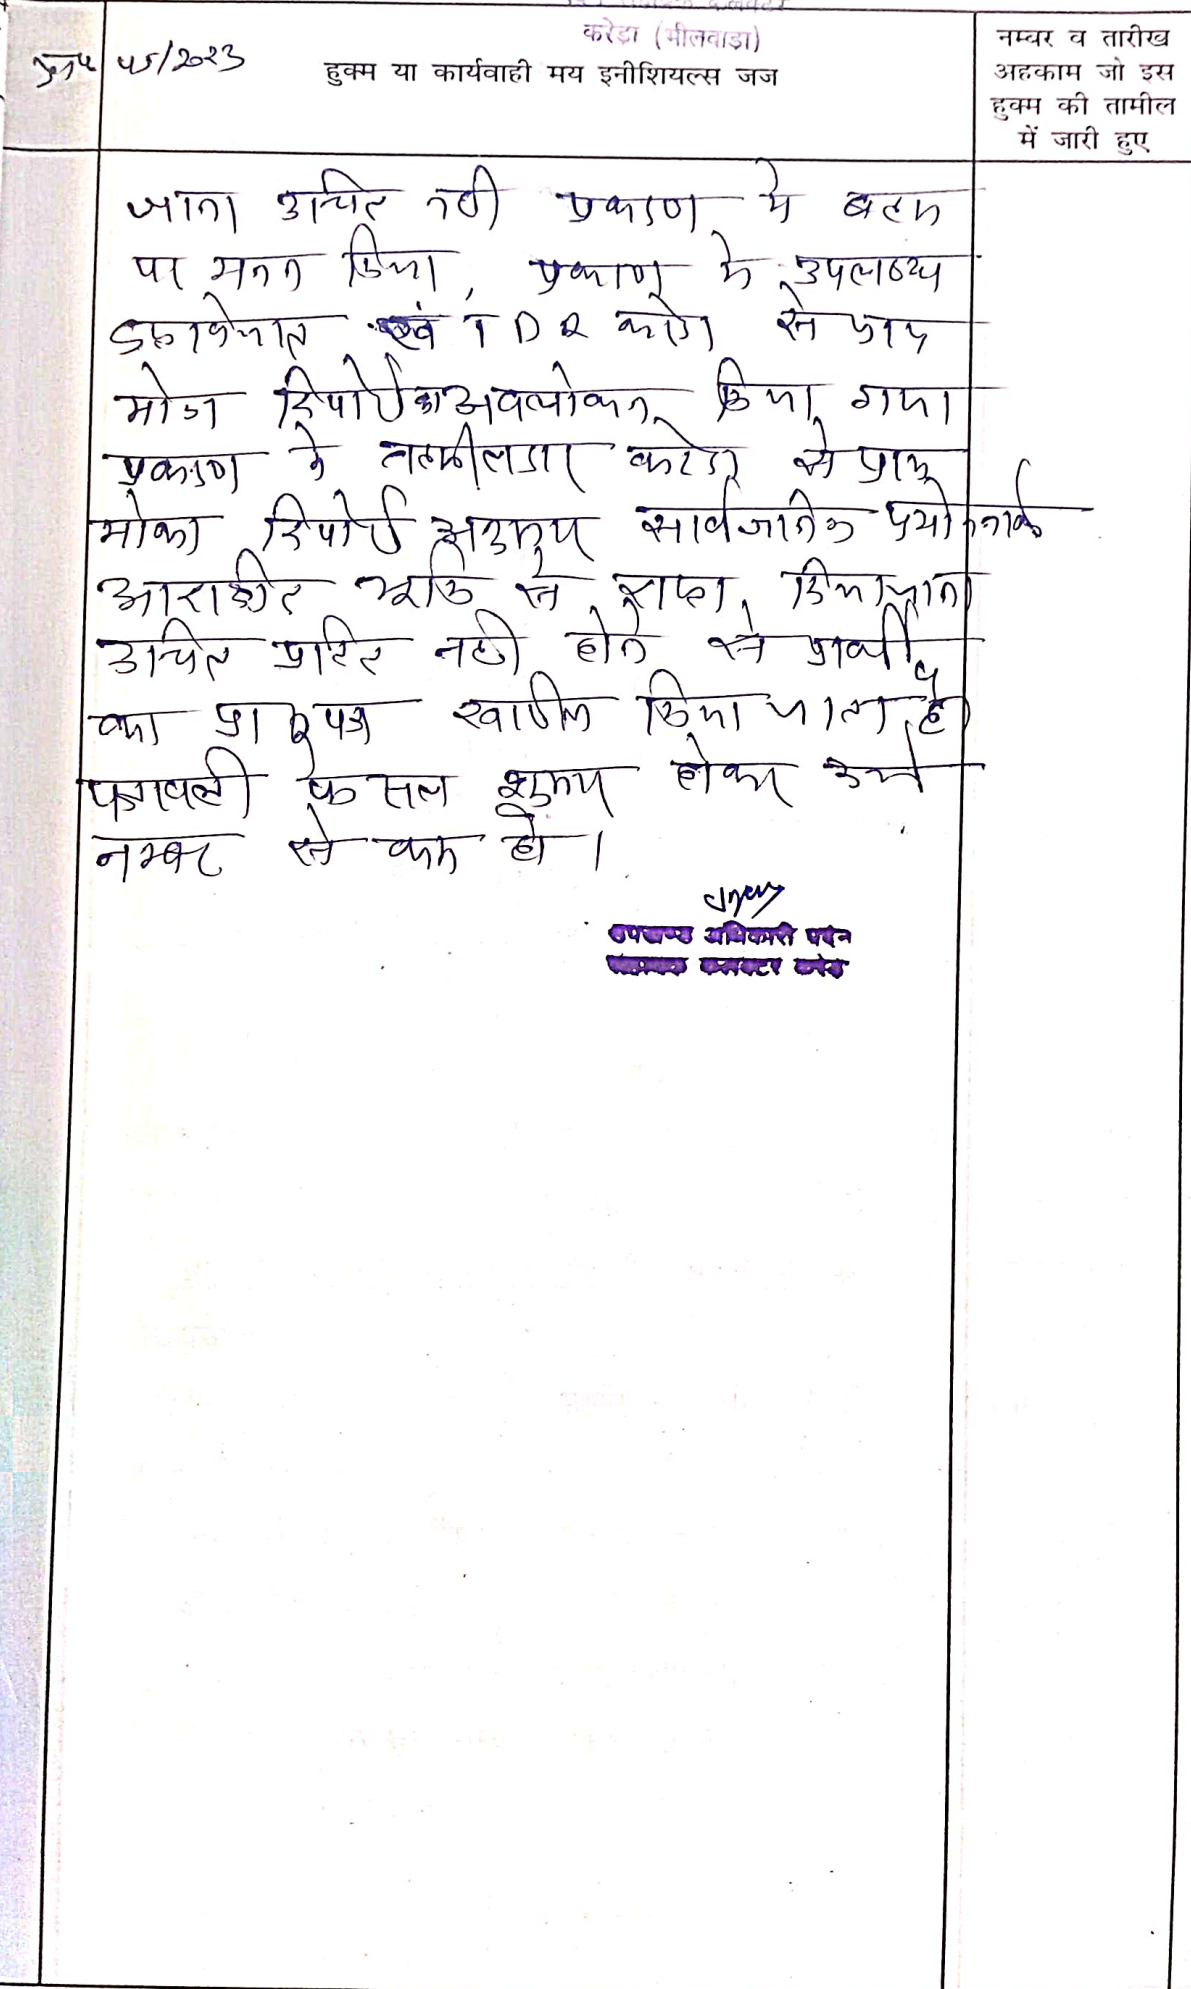 करेड़ा (भीलवाड़ा)
45/2023
हुक्म या कार्यवाही मय इनीशियल्स जज
नम्बर व तारीख
अहकाम जो इस
हुक्म की तामील
में जारी हुए
जाना उचित नही प्रकरण मे बहस
पर मनन किया, प्रकरण मे उपलब्ध
दस्तावेजात एवं TDR करेडा से प्राप्त
मोका रिपोर्ट का अवलोकन किया गया
प्रकरण मे तहसीलदार करेडा से प्राप्त
मोका रिपोर्ट अनुरूप सार्वजनिक प्रयोजनार्थ
आरक्षित भूमि से रास्ता दिया जाना
उचित प्रतित नही होने से प्रार्थी
का प्रा० पत्र खारीज किया जाता है
पत्रावली फेसल शुमार होकर दर्ज
नम्बर से कम हो।
उपखण्ड अधिकारी एवं
कलक्टर